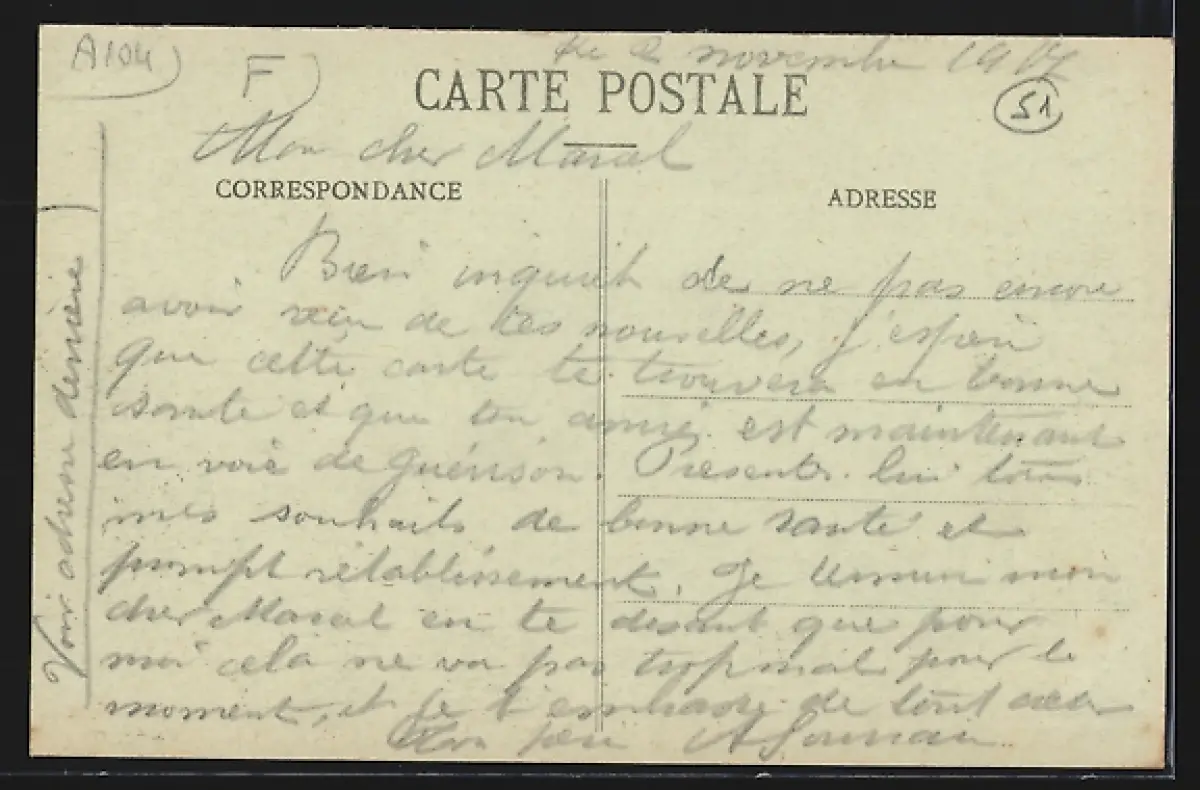 A104
F
le 2 novembre 1917
CARTE POSTALE
51
Mon cher Marcel
CORRESPONDANCE
ADRESSE
Bien inquiet de ne pas encore
avoir reçu de tes nouvelles, j'espère
que cette carte te trouvera en bonne
santé et que ton ami est maintenant
en voie de guérison. Présentes lui tous
mes souhaits de bonne santé et
prompt rétablissement. Je termine mon
cher Marcel en te disant que pour
moi cela ne va pas trop mal pour le
moment, et je t'embrasse de tout cœur
Ton père
Voir adresse derrière